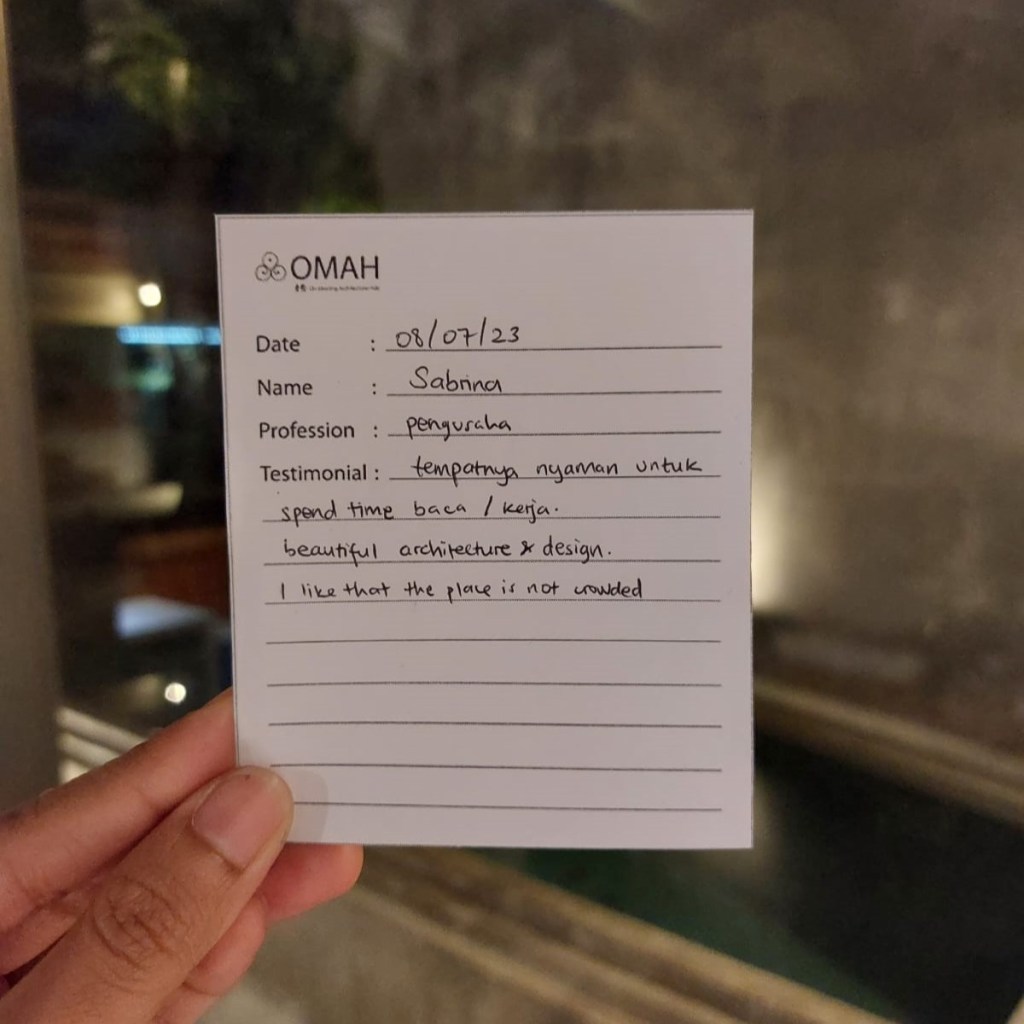 OMAH
Date : 08/07/23
Name : Sabrina
Profession : pengusaha
Testimonial : tempatnya nyaman untuk
spend time baca / kerja.
beautiful architecture & design.
I like that the place is not crowded